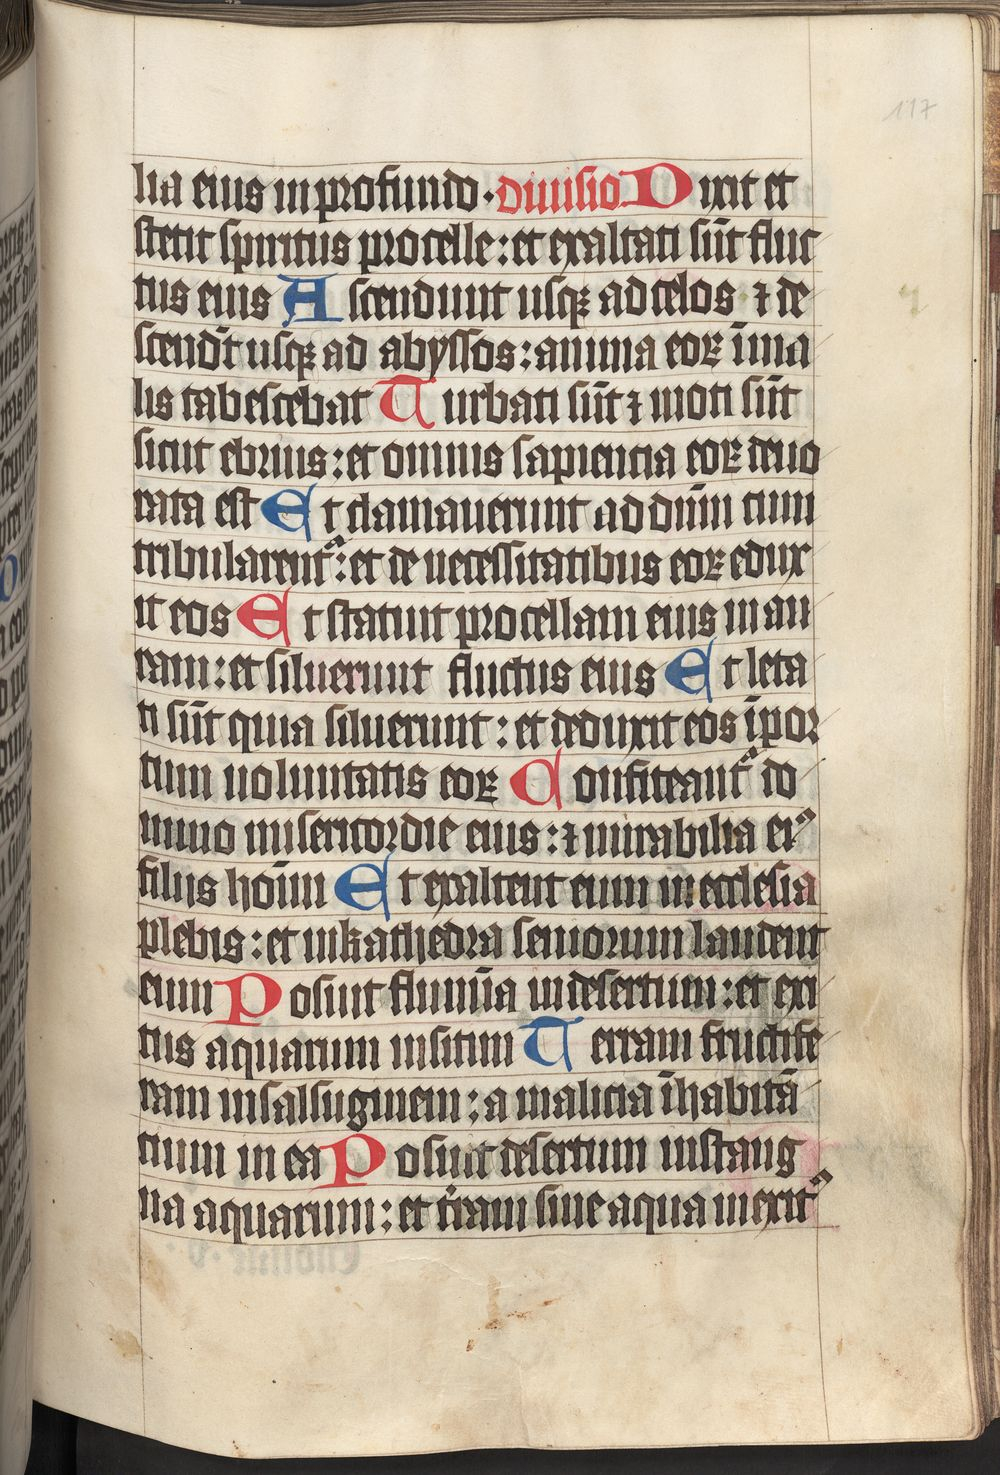 117
lia eius in profundo · diuisio Dixit et
stetit spiritus procelle : et exaltati sūt fluc
tus eius Ascendunt usqꝫ ad celos ⁊ de
scendūt usqꝫ ad abyssos : anima eoꝝ ī ma
lis tabescebat Turbati sūt ⁊ moti sūt
sicut ebrius : et omnis sapiencia eoꝝ deuo
rata est Et clamauerunt ad dūm cum
tribularent᷑ : et de necessitatibus eoꝝ edux
it eos Et statuit procellam eius in au
ram : et siluerunt fluctus eius Et leta
ti sūt quia siluerunt : et deduxit eos ī por
tum uoluntatis eoꝝ Confiteant᷑ do
mino misericordie eius : ⁊ mirabilia ei⁹
filiis hoīm Et exaltent eum in ecclesia
plebis : et in kathedra seniorum laudent
eum Posuit flumīa in desertum : et exi
tus aquarum in sitim Terram fructife
ram in salsuginem : a malicia īhabitā
cium in ea Posuit desertum in stang
na aquarum : et t̄ram sine aqua in exit⁹